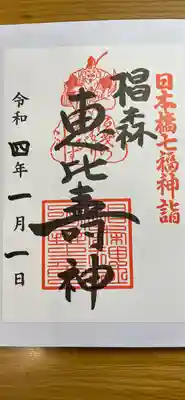 日本橋七福神詣
椙森
恵比壽神
令和四年一月一日